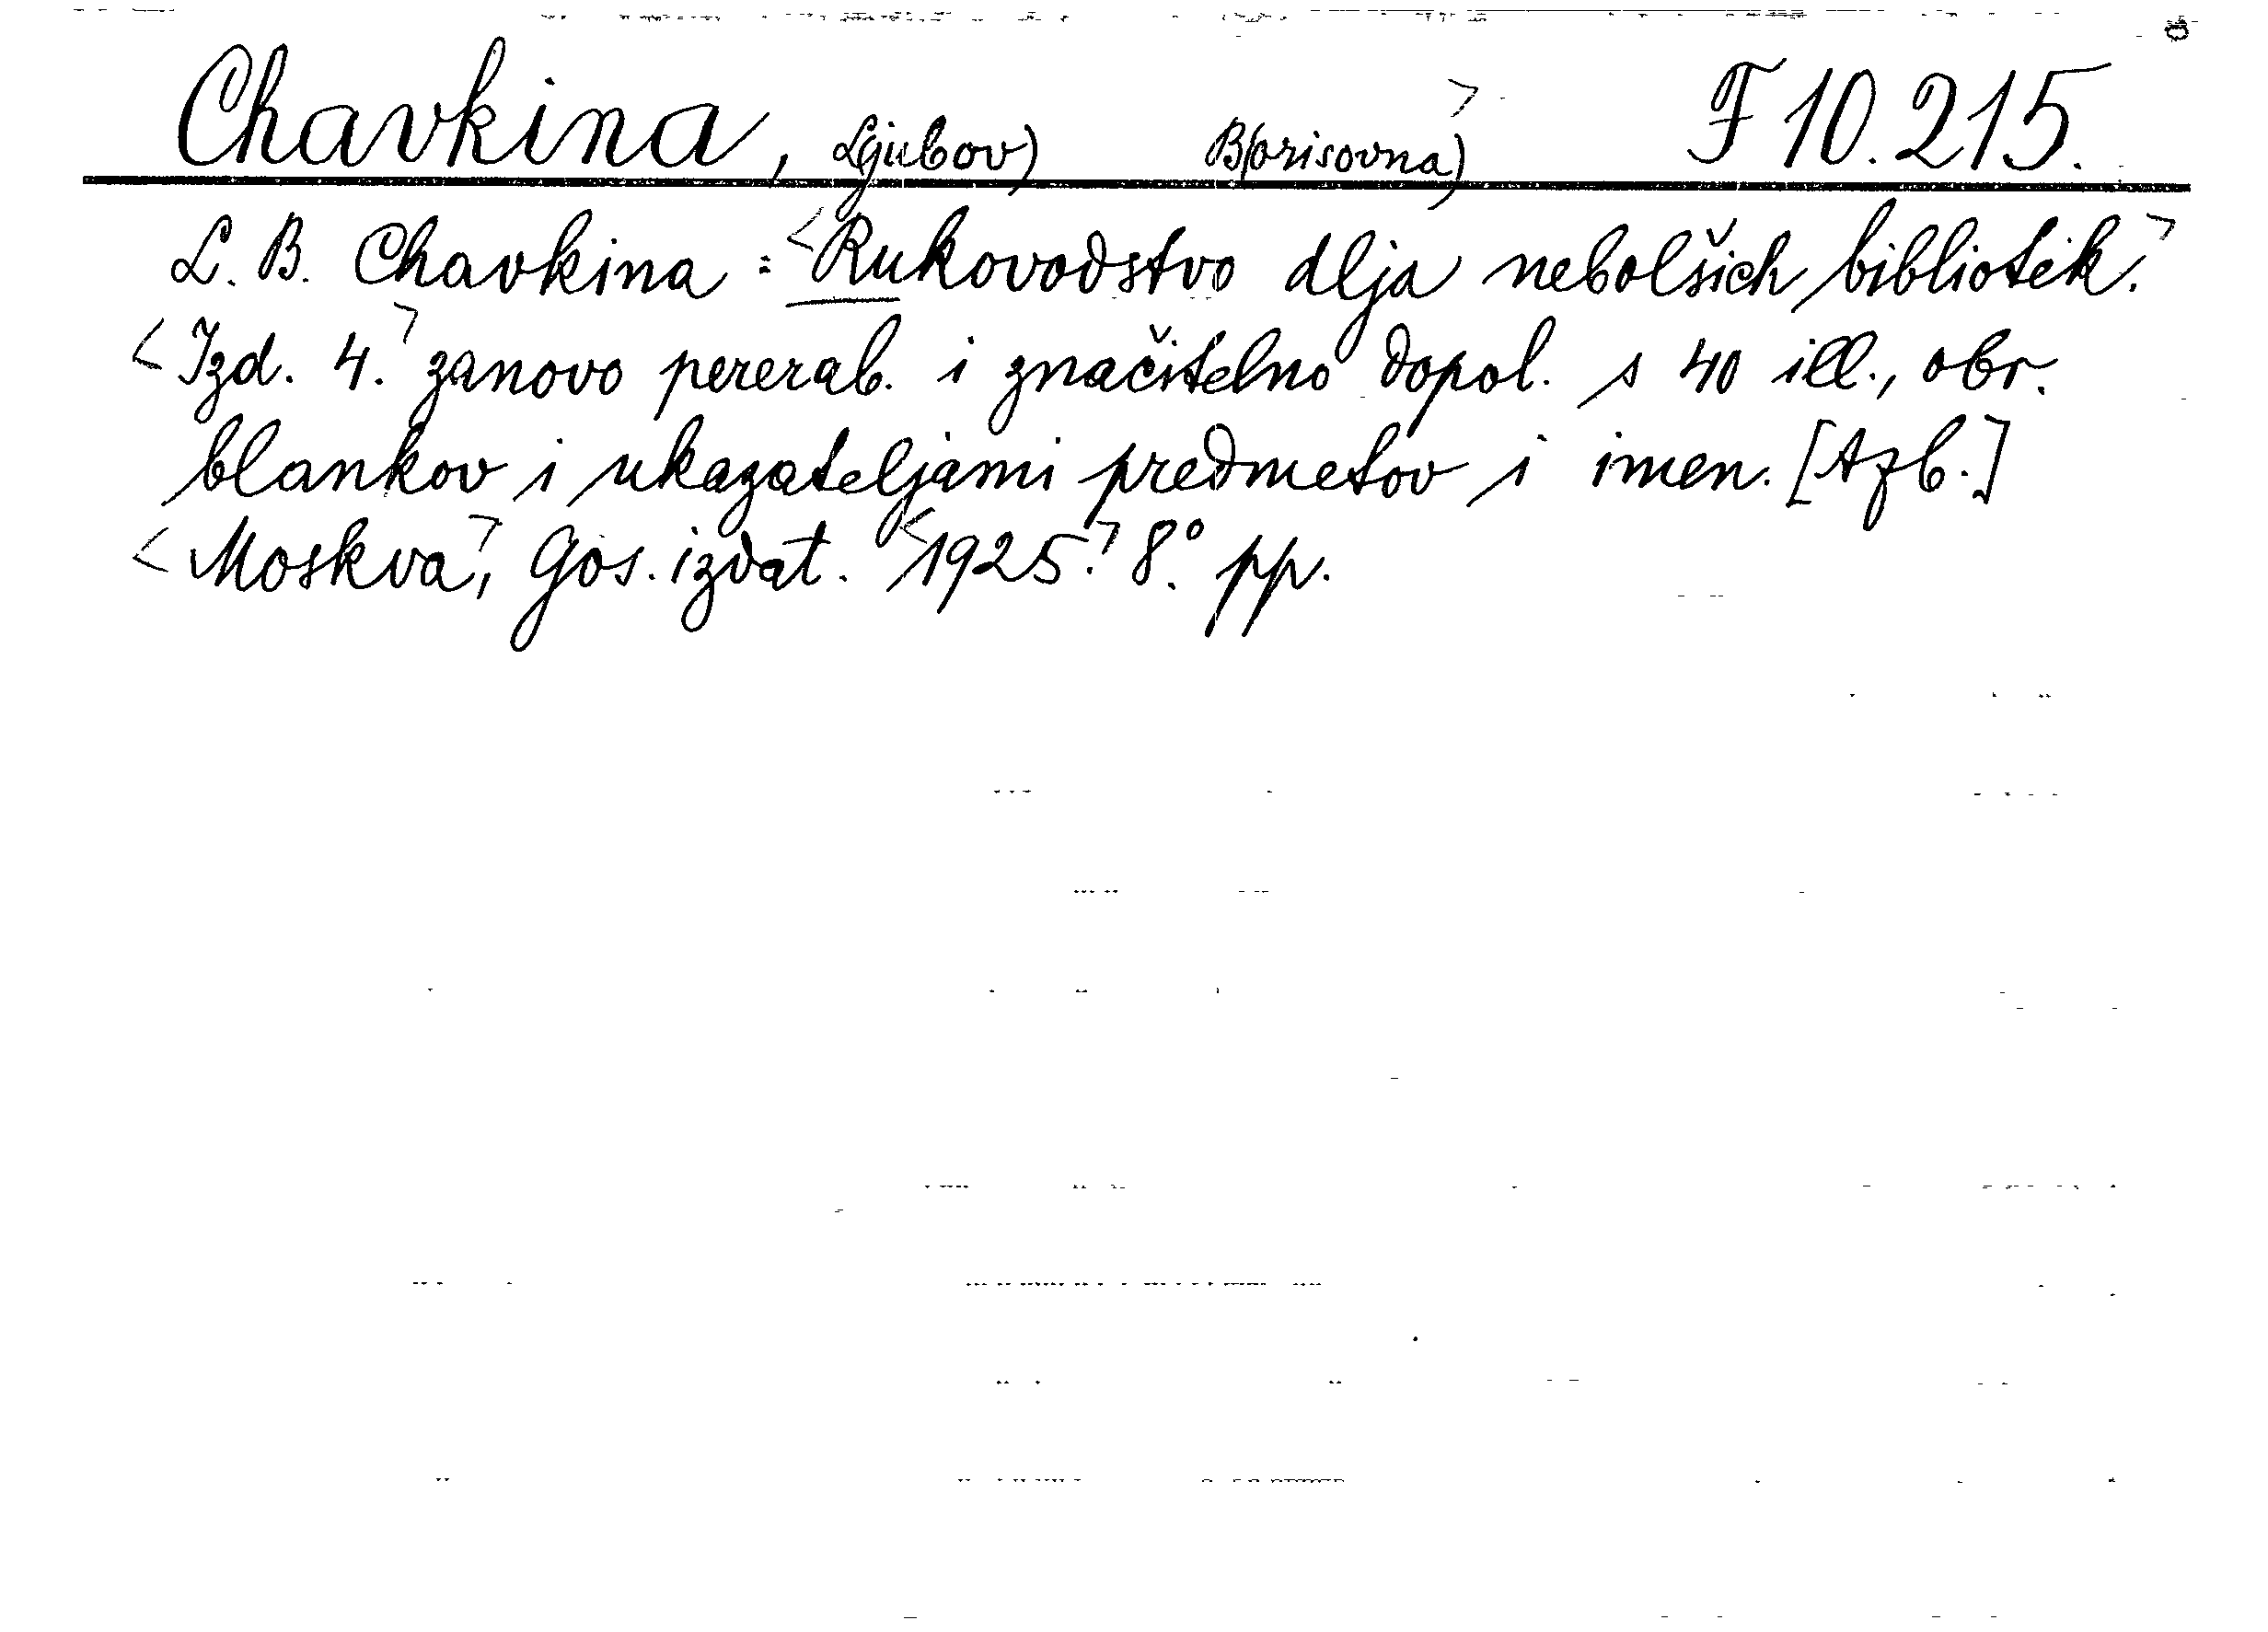 Chavkina, L(jubov) B(orisovna)> F 10.215.
L. B. Chavkina : <Rukovodstvo dlja nebolšich bibliotek.>
<Izd. 4.> zanovo pererab. i značitelno dopol. s 40 ill., obr.
blankov i ukazateljami predmetov i imen. [Azb.]
<Moskva>, Gos. izdat. <1925.> 8°. pp.